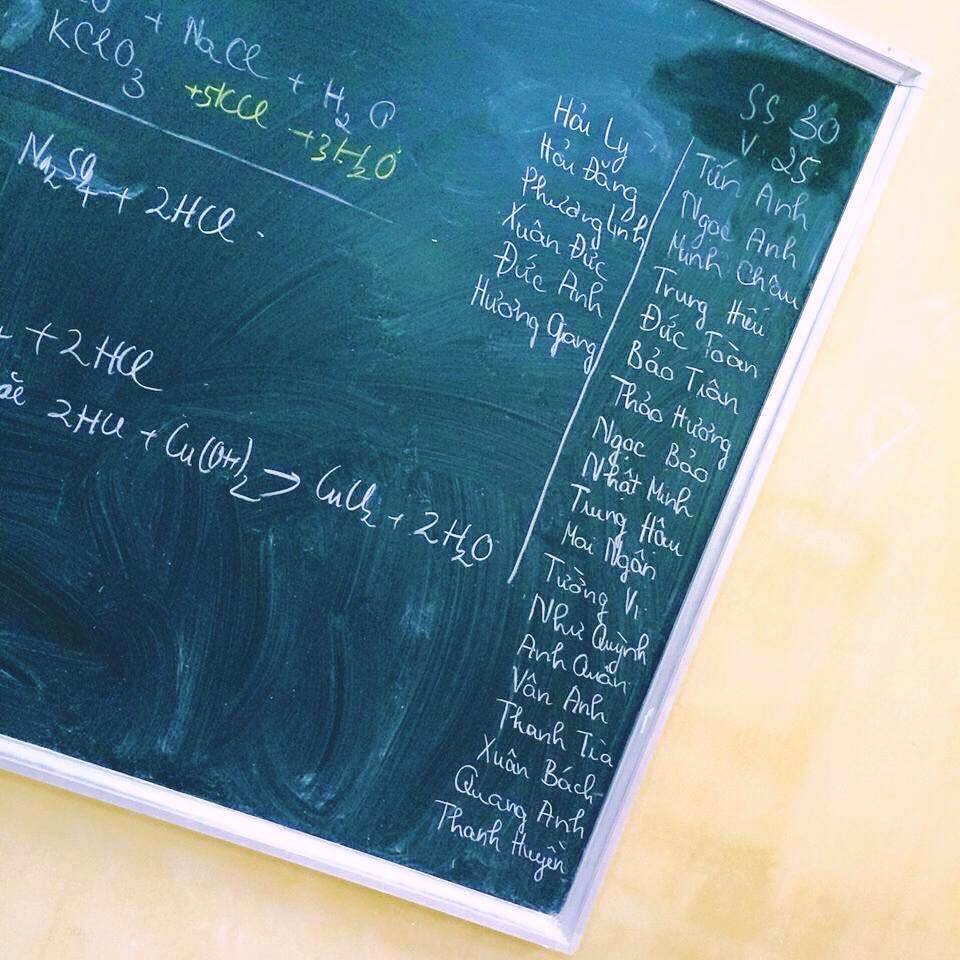 + NaCl + H₂O
KClO₃ +5KCl +3H₂O
Na₂SO₄ + 2HCl.
+ 2HCl
2HCl + Cu(OH)₂ → CuCl₂ + 2H₂O
Hải Ly
Hải Đăng
Phương Linh
Xuân Đức
Đức Anh
Hương Giang
SS 30
V: 25
Tấn Anh
Ngọc Anh
Minh Châu
Trung Hiếu
Đức Toàn
Bảo Trân
Thảo Hương
Ngọc Bảo
Nhật Minh
Trung Hậu
Mai Ngân
Tường Vi
Như Quỳnh
Anh Quân
Vân Anh
Thanh Trà
Xuân Bách
Quang Anh
Thanh Huyền